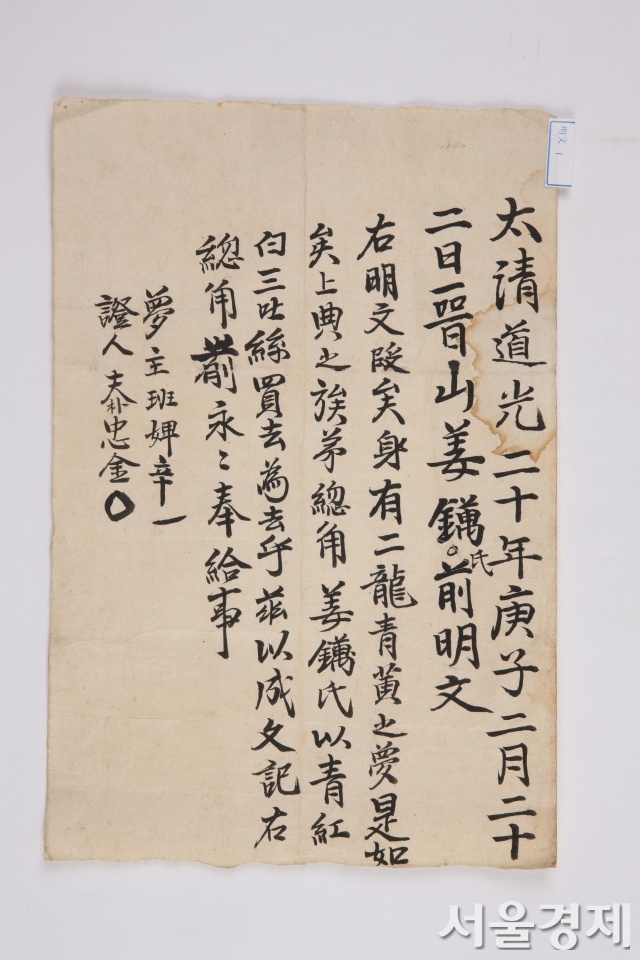 太清道光二十年庚子二月二十
二日晉山姜鏋氏前明文
右明文段矣身有二龍青黃之夢是如
矣上典之族弟總角姜鏋氏以青紅
白三吐絲買去為去乎茲以成文記右
總角前永〻奉給事
夢主班婢辛一
證人夫朴忠金
明文 1
서울경제